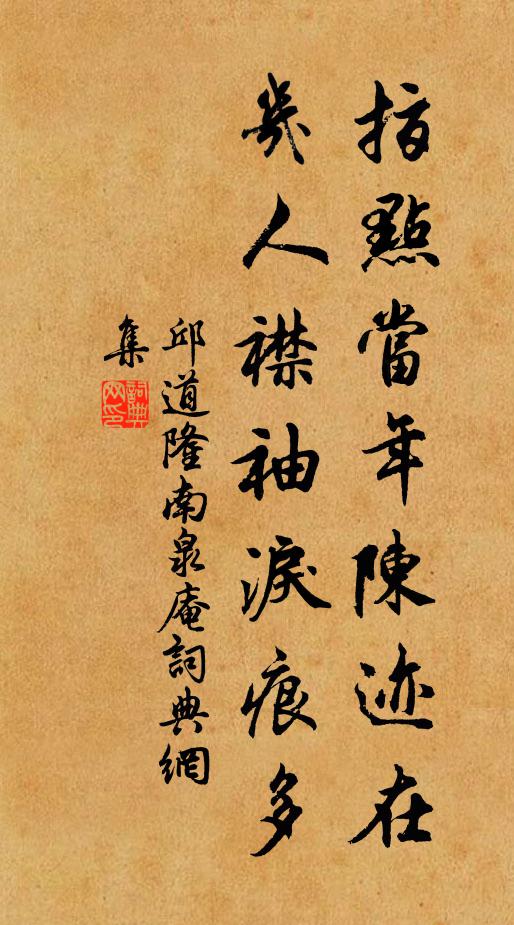 指點當年陳迹在
幾人襟袖淚痕多
邱道隆南泉庵詞典網
集
詞典網印